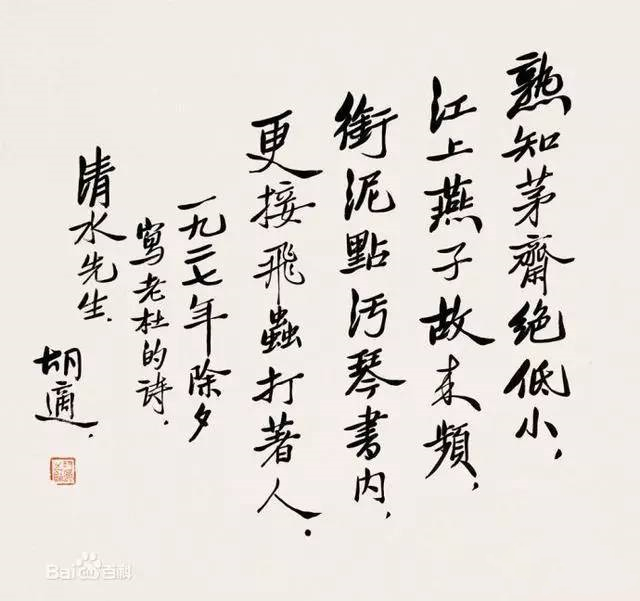 熟知茅齋絶低小，
江上燕子故来頻，
銜泥點汚琴書内，
更接飛蟲打著人．
一九二七年除夕
寫老杜的詩，
清水先生．
胡適．
Bai百科